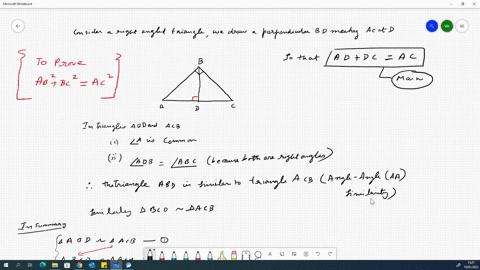 Microsoft Whiteboard
Consider a right angled triangle, we draw a perpendicular BD meeting AC at D
To Prove
AB² + BC² = AC²
So that AD + DC = AC
Main
B
A D C
In triangles ABD and ACB
(i) ∠A is Common
(ii) ∠ADB = ∠ABC (because both are right angles)
∴ the triangle ABD is similar to triangle ACB (Angle-Angle (AA)
Similarity)
Similarly Δ BCD ~ ΔACB
In Summary
Δ ABD ~ ΔACB — ①